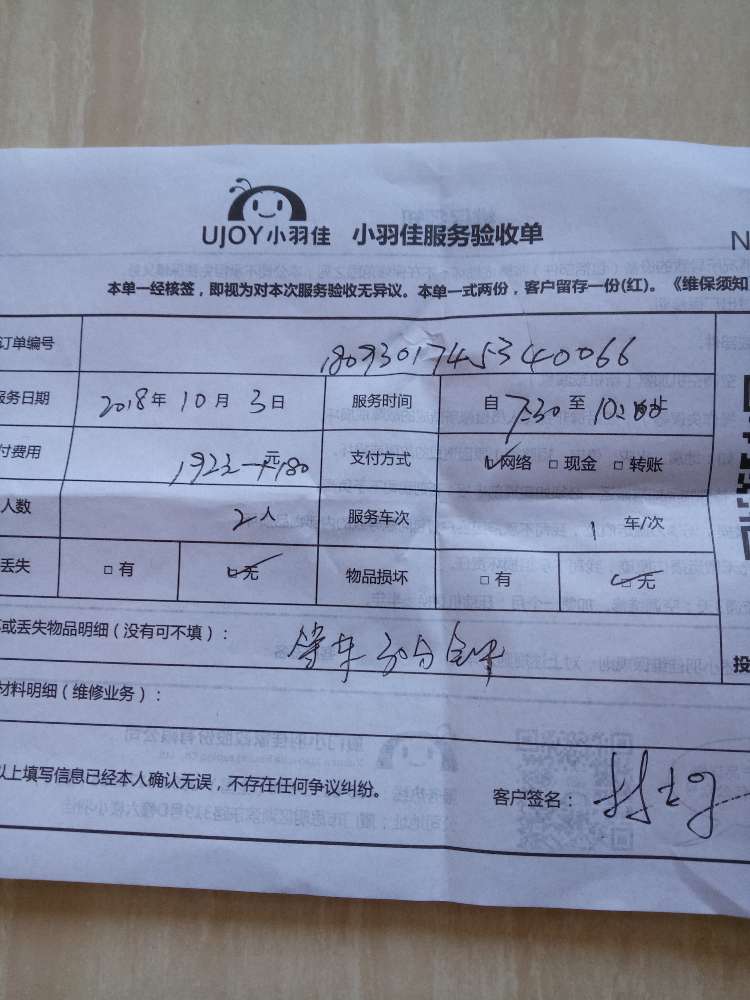 UJOY小羽佳 小羽佳服务验收单 N
本单一经核签，即视为对本次服务验收无异议。本单一式两份，客户留存一份(红)。《维保须知
订单编号 1809301745340066
服务日期 2018年 10月 3日 服务时间 自 7:30 至 10:00止
付费用 1922 元 180 支付方式 网络 □ 现金 □ 转账
人数 2人 服务车次 1 车/次
丢失 □ 有 □ 无 物品损坏 □ 有 □ 无
或丢失物品明细（没有可不填）： 等车30分钟
投
材料明细（维修业务）：
以上填写信息已经本人确认无误，不存在任何争议纠纷。 客户签名：